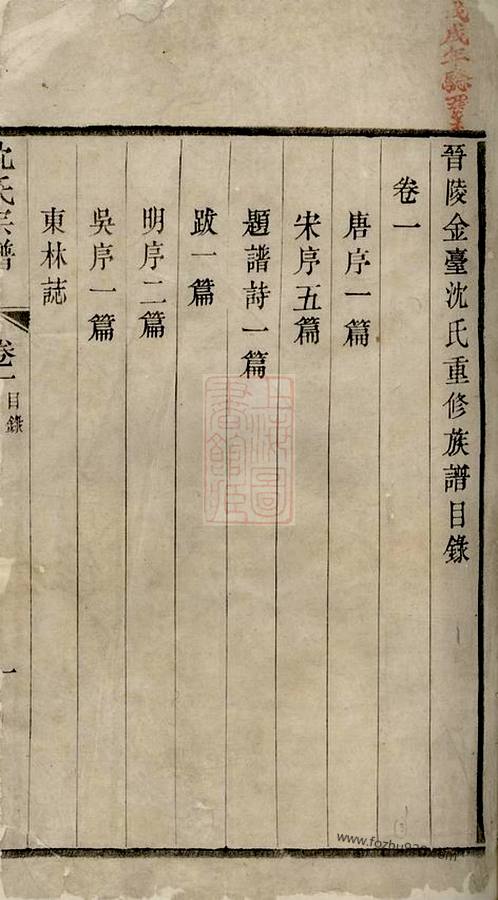 戊戌年
晉陵金臺沈氏重修族譜目錄
卷一
唐序一篇
宋序五篇
題譜詩一篇
跋一篇
明序二篇
吳序一篇
東林誌
沈氏宗譜
卷一
目錄
一
上海圖書館藏
www.fozhu920.com